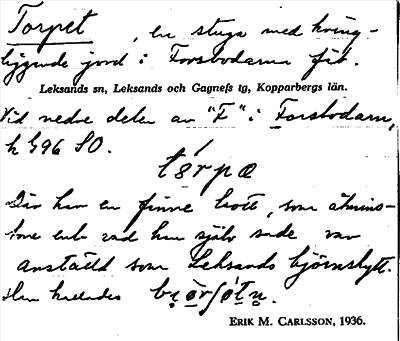 Torpet, en stuga med kring-
liggande jord i Forsbodarna fäb.
Leksands sn, Leksands och Gagnefs tg, Kopparbergs län.
Vid nedre delen av "F" i Forsbodarn,
k 96 SO.
Där har en finne bott, som åtmins-
tone enl. vad han själv sade var
anställd som Leksands björnskytt.
Han kallades
ERIK M. CARLSSON, 1936.